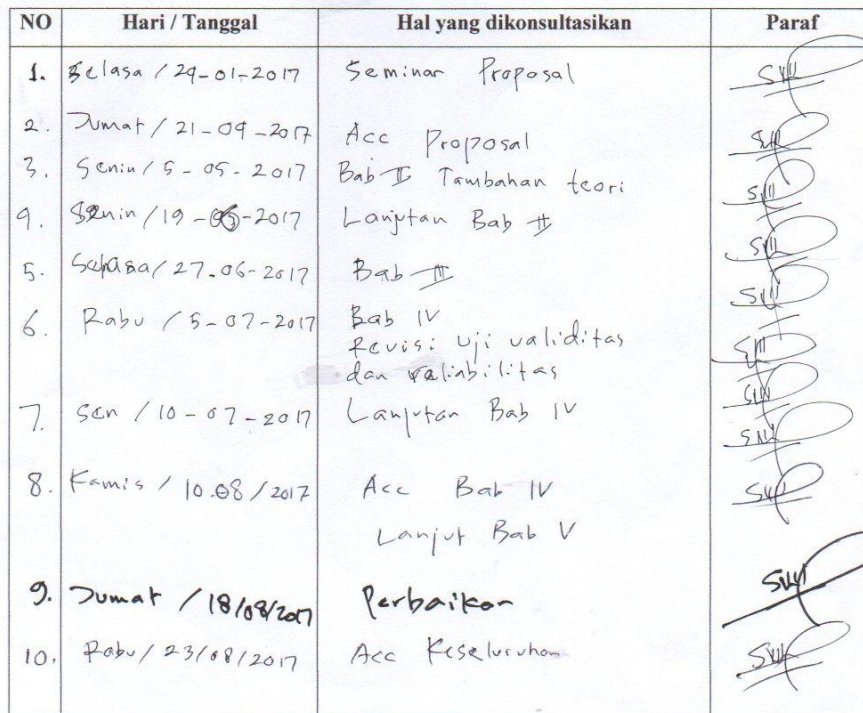 NO Hari / Tanggal Hal yang dikonsultasikan Paraf
1. Selasa / 24-01-2017 Seminar Proposal
2. Jumat / 21-04-2017 Acc Proposal
3. Senin / 5-05-2017 Bab II Tambahan teori
4. Senin / 19-06-2017 Lanjutan Bab II
5. Selasa / 27-06-2017 Bab III
6. Rabu / 5-07-2017 Bab IV
Revisi Uji validitas
dan reliabilitas
7. Sen / 10-07-2017 Lanjutan Bab IV
8. Kamis / 10.08/2017 Acc Bab IV
Lanjut Bab V
9. Jumat / 18/08/2017 Perbaikan
10. Rabu / 23/08/2017 Acc Keseluruhan